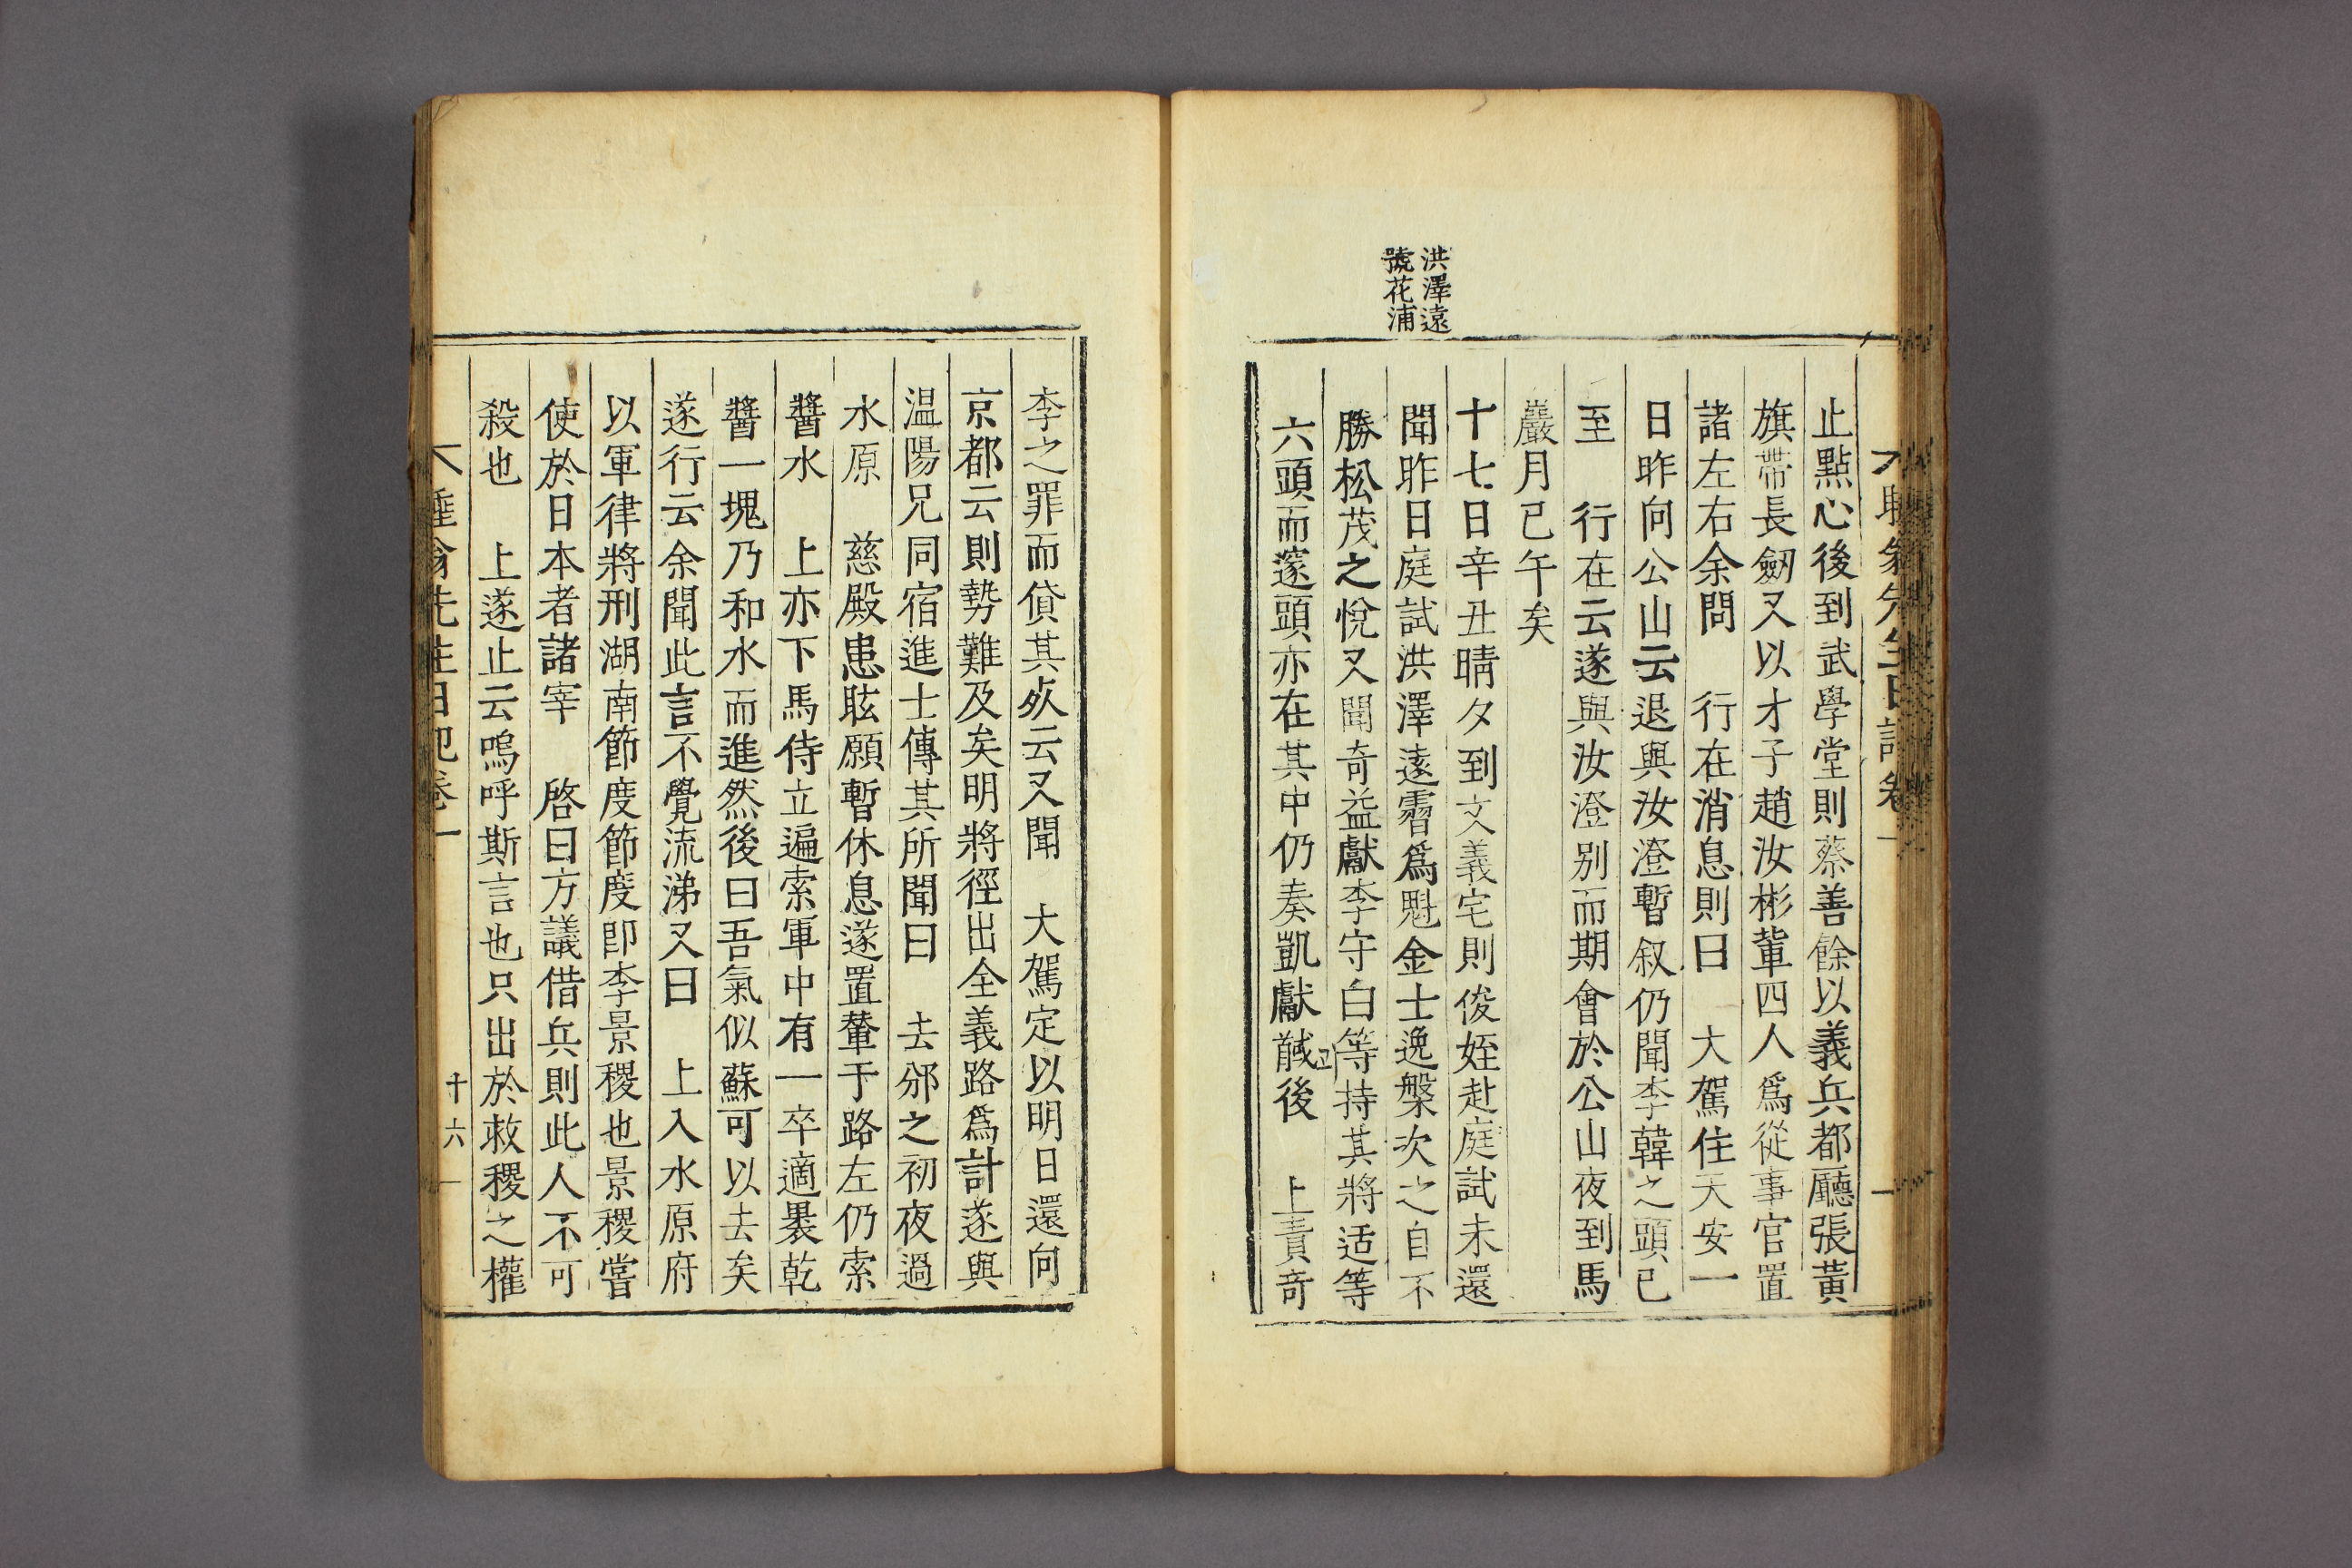 洪澤遠
號花浦
止點心後到武學堂則蔡善餘以義兵都廳張黃
旗帶長劒又以才子趙汝彬軰四人爲從事官置
諸左右余問　行在消息則曰　大駕住天安一
日昨向公山云退與汝澄暫叙仍聞李韓之頭已
至　行在云遂與汝澄别而期會於公山夜到馬
巖月已午矣
十七日辛丑晴夕到文義宅則俊姪赴庭試未還
聞昨日庭試洪澤遠霫爲魁金士逸槃次之自不
勝松茂之悅又聞奇益獻李守白等持其將适等
六頭而邃頭亦在其中仍奏凱獻馘後　上責奇
李之罪而貸其死云又聞　大駕定以明日還向
京都云則勢難及矣明將徑出全義路爲計遂與
温陽兄同宿進士傳其所聞曰　去邠之初夜過
水原　慈殿患眩願暫休息遂置輦于路左仍索
醬水　上亦下馬侍立遍索軍中有一卒適褁乾
醬一塊乃和水而進然後曰吾氣似蘇可以去矣
遂行云余聞此言不覺流涕又曰　上入水原府
以軍律將刑湖南節度節度卽李景稷也景稷嘗
使於日本者諸宰　啓曰方議借兵則此人不可
殺也　上遂止云嗚呼斯言也只出於救稷之權
先生日記卷一
十六